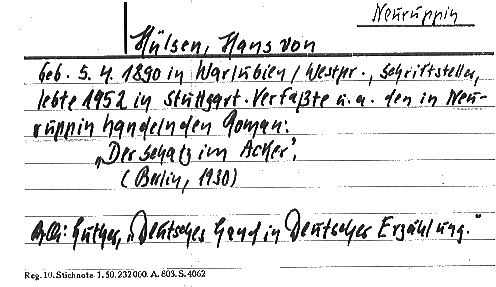 Neuruppin
Hülsen, Hans von
Geb. 5. 4. 1890 in Warlubien / Westpr., Schriftsteller,
lebte 1952 in Stuttgart. Verfaßte u. a. den in Neu-
ruppin handelnden Roman:
„Der Schatz im Acker",
(Berlin, 1930)
Luther, „Deutsches Land in Deutscher Erzählung."
Reg. 10. Stichnote 1. 50. 232 060. A. 803. S. 4062